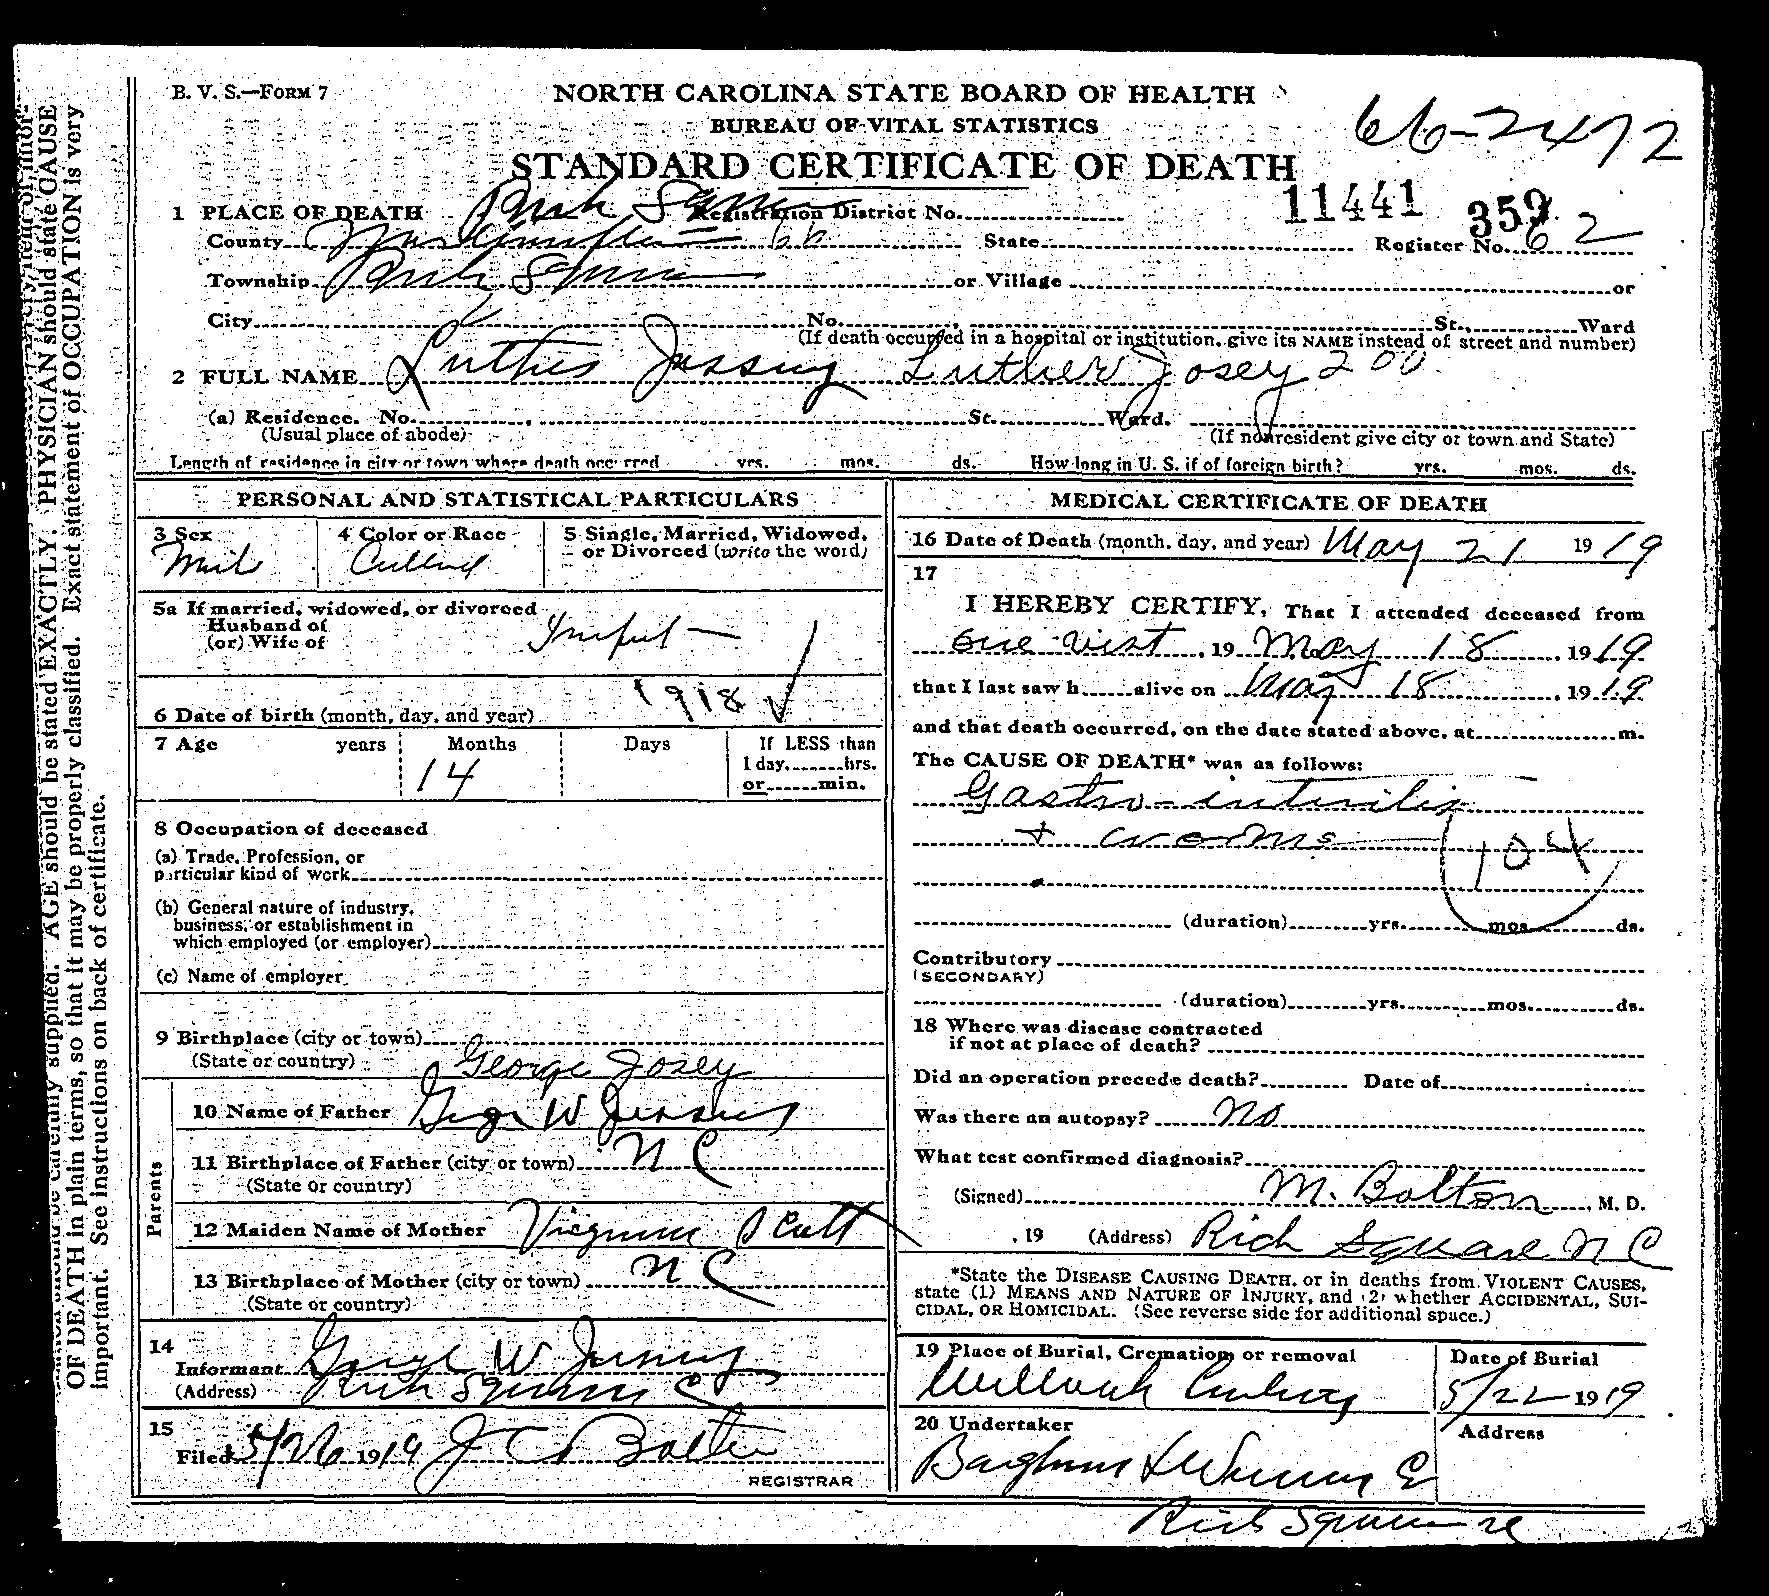 B. V. S.—FORM 7
NORTH CAROLINA STATE BOARD OF HEALTH
BUREAU OF VITAL STATISTICS
66-2472
STANDARD CERTIFICATE OF DEATH
11441 359
1 PLACE OF DEATH Rich Square Registration District No.
County Northampton 66 State Register No. 62
Township Rich Square or Village or
City No. St., Ward
(If death occurred in a hospital or institution, give its NAME instead of street and number)
2 FULL NAME Luther Jossey Luther Josey 200
(a) Residence. No. St. Ward.
(Usual place of abode) (If nonresident give city or town and State)
Length of residence in city or town where death occurred yrs. mos. ds. How long in U. S. if of foreign birth? yrs. mos. ds.
PERSONAL AND STATISTICAL PARTICULARS
3 Sex 4 Color or Race 5 Single, Married, Widowed,
or Divorced (write the word)
Male
5a If married, widowed, or divorced
Husband of
(or) Wife of
1918
6 Date of birth (month, day, and year)
7 Age years Months Days If LESS than
1 day, hrs.
14 or min.
8 Occupation of deceased
(a) Trade, Profession, or
particular kind of work
(b) General nature of industry,
business, or establishment in
which employed (or employer)
(c) Name of employer
9 Birthplace (city or town)
(State or country) George Josey
Parents
10 Name of Father George W Jossey
11 Birthplace of Father (city or town) N C
(State or country)
12 Maiden Name of Mother Virginia Scott
13 Birthplace of Mother (city or town) N C
(State or country)
14
Informant George W Jossey
(Address) Rich Square N C
15
Filed 5/26 1919 J C Bolton
REGISTRAR
MEDICAL CERTIFICATE OF DEATH
16 Date of Death (month, day, and year) May 21 1919
17
I HEREBY CERTIFY, That I attended deceased from
one visit, 19 May 18, 1919
that I last saw h alive on May 18, 1919
and that death occurred, on the date stated above, at m.
The CAUSE OF DEATH* was as follows:
Gastro-
+ worms 104
(duration) yrs. mos. ds.
Contributory
(SECONDARY)
(duration) yrs. mos. ds.
18 Where was disease contracted
if not at place of death?
Did an operation precede death? Date of
Was there an autopsy? No
What test confirmed diagnosis?
(Signed) M. Bolton, M. D.
, 19 (Address) Rich Square N C
*State the DISEASE CAUSING DEATH, or in deaths from VIOLENT CAUSES,
state (1) MEANS AND NATURE OF INJURY, and (2) whether ACCIDENTAL, SUI-
CIDAL, OR HOMICIDAL. (See reverse side for additional space.)
19 Place of Burial, Cremation or removal Date of Burial
5/22 1919
20 Undertaker Address
Rich Square NC
mation should be carefully supplied. AGE should be stated EXACTLY. PHYSICIAN should state CAUSE
OF DEATH in plain terms, so that it may be properly classified. Exact statement of OCCUPATION is very
important. See instructions on back of certificate.